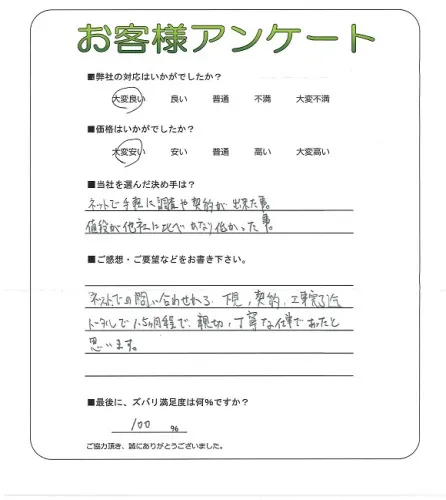 お客様アンケート
■弊社の対応はいかがでしたか?
大変良い 良い 普通 不満 大変不満
■価格はいかがでしたか?
大変安い 安い 普通 高い 大変高い
■当社を選んだ決め手は?
ネットで手軽に調査や契約が出来た事。
値段が他社に比べかなり低かった事。
■ご感想・ご要望などをお書き下さい。
ネットでの問い合わせから、下見、契約、工事完了迄
トータルで1.5ヶ月程で、親切、丁寧な仕事であったと
思います。
■最後に、ズバリ満足度は何%ですか?
100 %
ご協力頂き、誠にありがとうございました。